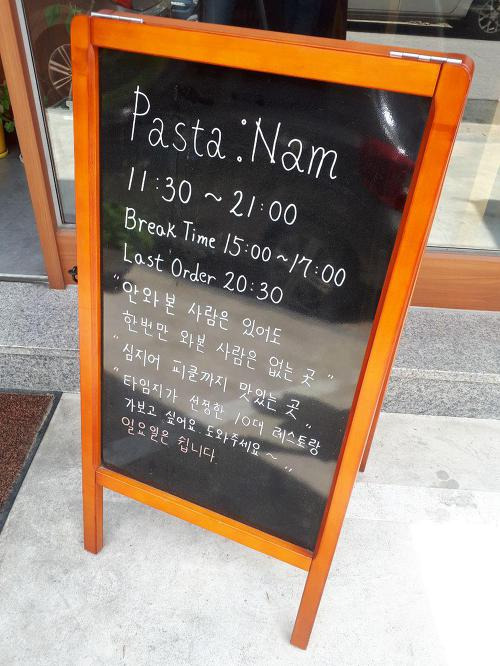 Pasta:Nam
11:30 ~ 21:00
Break Time 15:00~17:00
Last Order 20:30
"안와본 사람은 있어도
한번만 와본 사람은 없는 곳"
"심지어 피클까지 맛있는 곳"
"타임지가 선정한 10대 레스토랑
가보고 싶어요. 도와주세요~"
일요일은 쉽니다.